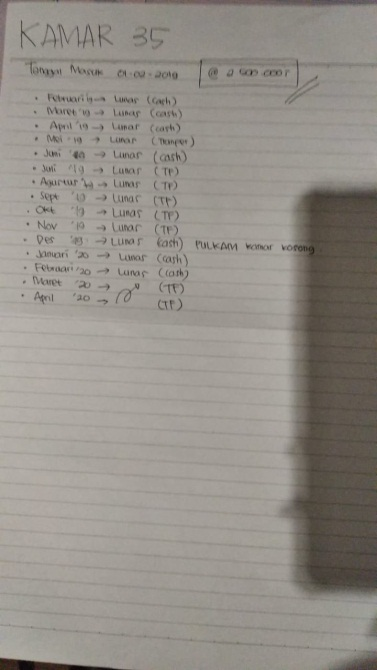 KAMAR 35
Tanggal Masuk 01-02-2019 @ 2.500.000,-
• Februari '19 → Lunas (cash)
• Maret '19 → Lunas (cash)
• April '19 → Lunas (cash)
• Mei '19 → Lunas (Transfer)
• Juni '19 → Lunas (cash)
• Juli '19 → Lunas (TF)
• Agustus '19 → Lunas (TF)
• Sept '19 → Lunas (TF)
• Okt '19 → Lunas (TF)
• Nov '19 → Lunas (TF)
• Des '19 → Lunas (cash) PULKAM kamar kosong.
• Januari '20 → Lunas (cash)
• Februari '20 → Lunas (cash)
• Maret '20 → (TF)
• April '20 → (TF)